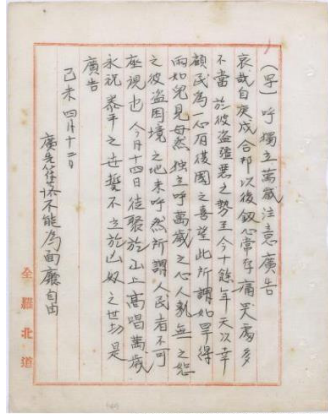 (写) 呼獨立萬歲注意廣告
哀哉自庚戌合邦以後叙心常存痛哭處多
不當於彼盜强惡之勢至今十餘年天次幸
顧民為一心有復國之喜望此所謂如旱得
雨如兒見母然独立呼萬歲之心人孰無之恕
之彼盜困境之地未呼然所謂人民者不可
座視也今月十四日徒聚於山上高唱萬歲
永祝泰平之世誓不立於山奴之世切是
廣告
己未四月十二日
廣先生怀不能为面廳自由
全羅北道